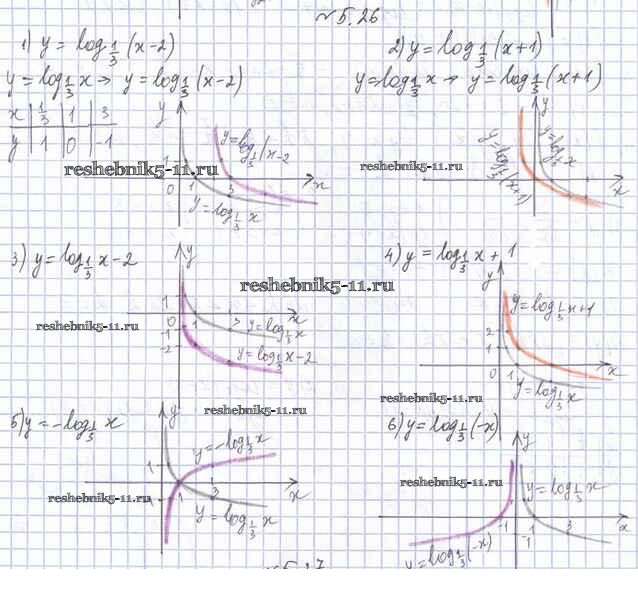 № 5.26
1) y = log_{1/3}(x-2)
2) y = log_{1/3}(x+1)
y = log_{1/3} x → y = log_{1/3}(x-2)
y = log_{1/3} x → y = log_{1/3}(x+1)
x 1/3 1 3
y 1 0 -1
y
1
0 1 3
x
y = log_{1/3}(x-2
y = log_{1/3} x
reshebnik5-11.ru
y
x
y = log_{1/3}(x+1)
y = log_{1/3} x
reshebnik5-11.ru
3) y = log_{1/3} x - 2
4) y = log_{1/3} x + 1
reshebnik5-11.ru
y
1
0 1 3
-1
-2
x
y = log_{1/3} x
y = log_{1/3} x - 2
reshebnik5-11.ru
y
2
1
0 1
x
y = log_{1/3} x + 1
y = log_{1/3} x
reshebnik5-11.ru
5) y = -log_{1/3} x
6) y = log_{1/3}(-x)
reshebnik5-11.ru
y
1
1 3
x
y = -log_{1/3} x
y = log_{1/3} x
reshebnik5-11.ru
y
-1 1 3
-1
x
y = log_{1/3} x
y = log_{1/3}(-x)
reshebnik5-11.ru